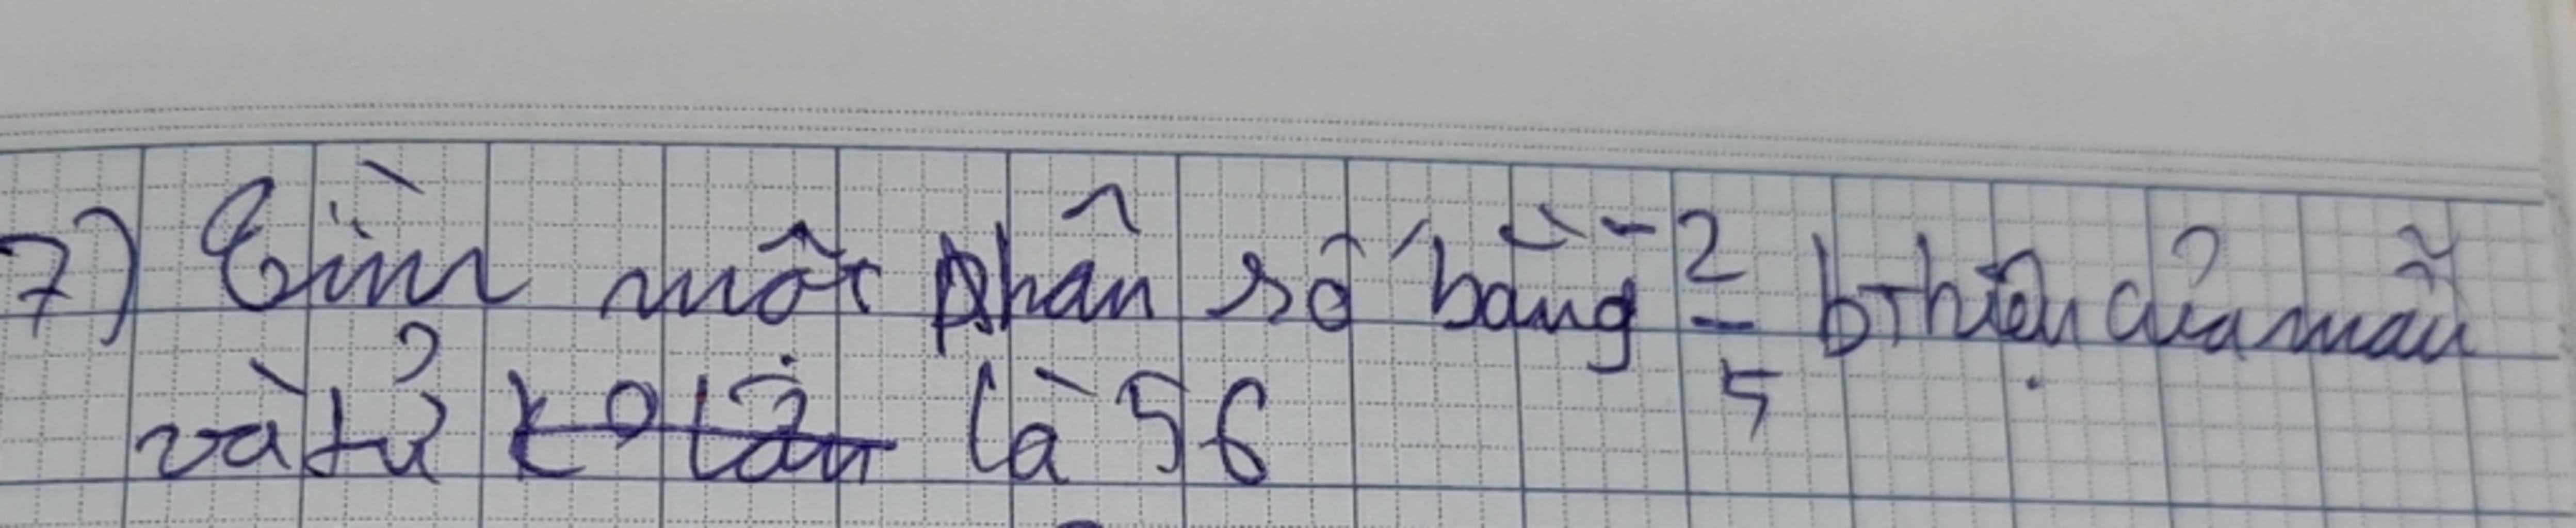 7) Tìm một phân số bằng -2/5 bthiệu của mẫu
và tử là 56